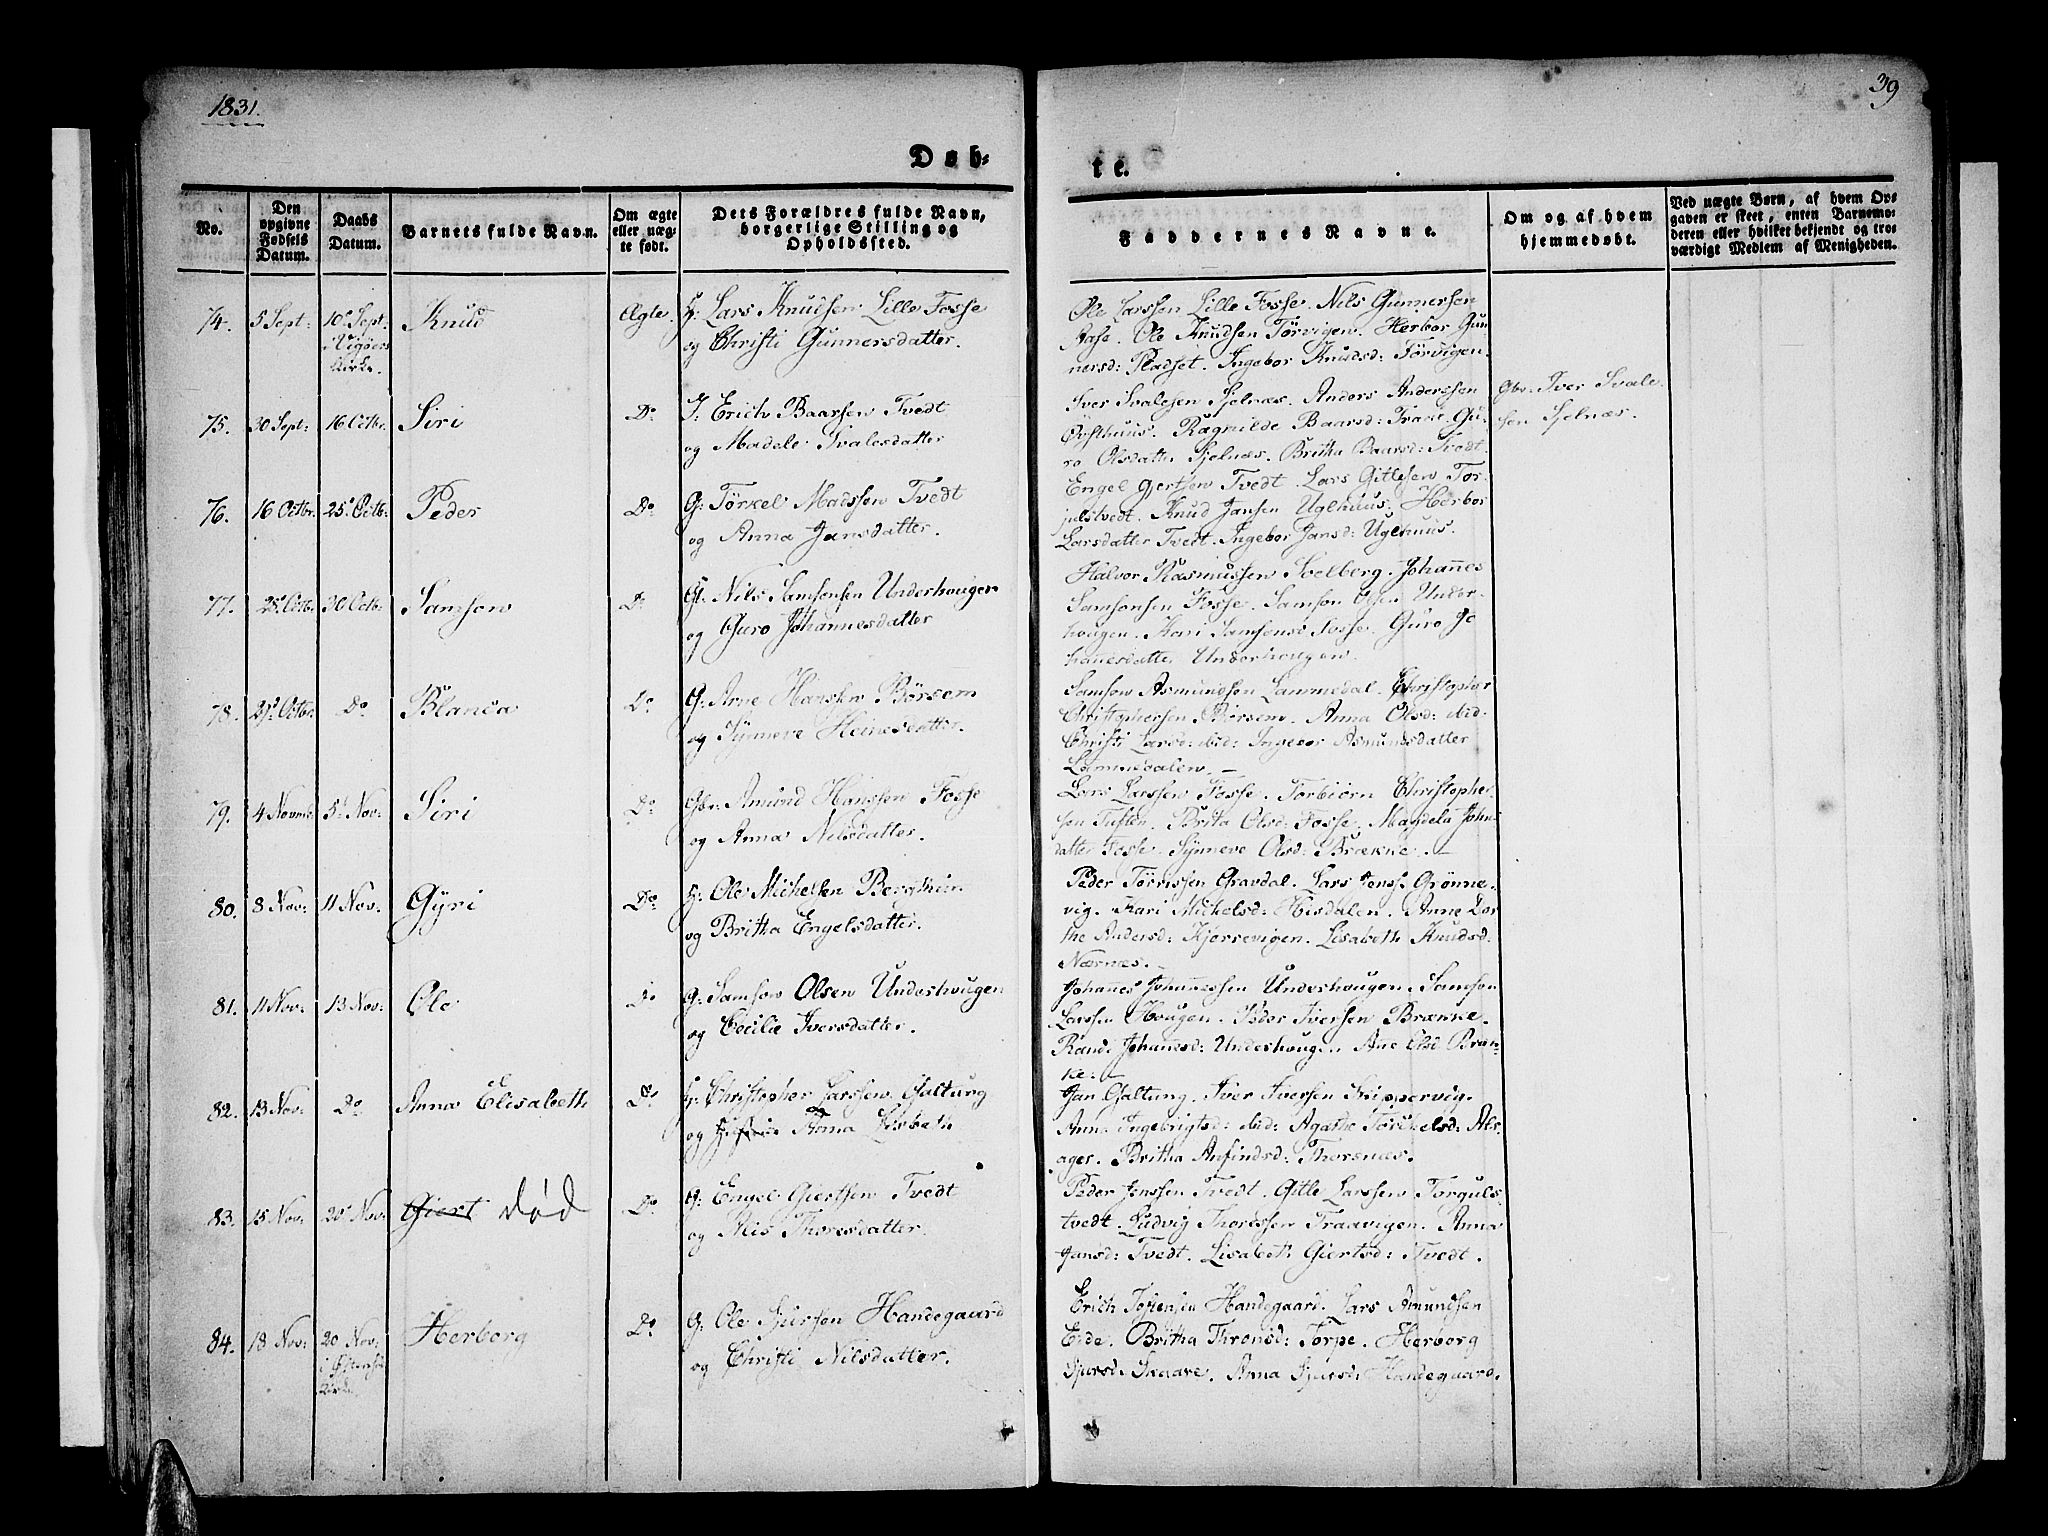 1831.
39
Døb-
te.
No.
Den
opgivne
Fødsels
Datum.
Daabs
Datum.
Barnets fulde Navn.
Om ægte
eller uæg-
te født.
Dets Forældres fulde Navn,
borgerlige Stilling og
Opholdssted.
Faddernes Navne.
Om og af hvem
hjemmedøbt.
Ved uægte Børn, af hvem Op-
gaven er skeet, enten Barnemo-
deren eller hvilket bekjendt og tro-
værdigt Medlem af Menigheden.
74. 5 Sept: 10 Sept: Knud Ægte H: Lars Knudsen Lille Fosse
i Vigøers
Kirke.
og Christi Gunnersdatter.
Ole Larssen Lille Fosse. Nils Gunnersen
Aase. Ole Knudsen Tørvigen. Herbor Gun
nersd: Pladset. Ingebor Knudsd: Tørvigen.
75. 30 Sept: 16 Octbr. Siri Do J: Erich Baarsen Tvedt
og Madele Svalesdatter
Iver Svalesen Sjelnæs. Anders Anderssen
Øvsthuus. Ragnilde Baarsd: Traae. Gu-
ro Olsdatter Sjelnæs. Britha Baarsd: Tvedt.
Gbr. Iver Svale-
sen Sjelnæs.
76. 16 Octbr. 25 Octb: Peder Do G: Tørkel Madssen Tvedt
og Anna Jansdatter.
Engel Gjertsen Tvedt. Lars Gitlesen Tor-
julstvedt. Knud Jansen Uglhuus. Herbor
Larsdatter Tvedt. Ingebor Jansd: Uglhuus.
77. 25 Octb. 30 Octb: Samson Do G: Nils Samsonsen Underhougen
og Guro Johannesdatter
Halvor Rasmussen Solberg. Johannes
Samsonsen Fosse. Samson Olsen Under-
hougen. Kari Samsonsd Fosse. Guro Jo
hannesdatter Underhougen.
78. 29 Octbr. Do Blanca Do G: Arne Hanssen Børsem
og Synneve Heinesdatter.
Samson Asmundsen Lammedal. Christopher
Christophersen Børsem. Anna Olsd: ibid:
Christi Larsd: ibid: Ingebor Asmundsdatter
Lammedalen. —
79. 4 Novmr. 5 Nov: Siri Do Gbr: Amund Hanssen Fosse
og Anna Nilsdatter.
Lars Larssen Fosse. Torbiørn Christopher-
sen Tuften. Brita Olsd: Fosse. Magdela John
datter Fosse. Synneve Olsd: Brække. —
80. 8 Nov: 11 Nov: Gyri Do H: Ole Michelsen Bergthun
og Britha Engelsdatter.
Peder Tørrissen Gravdal. Lars Jenss. Grønne-
vig. Kari Michelsd: Hisdalen. Anne Dor
the Andersd: Kjerrevigen. Lisabeth Knudsd:
Nærnæs. —
81. 11 Nov: 13 Nov: Ole Do G: Samson Olsen Underhougen
og Cecilie Iversdatter.
Johannes Johannessen Underhougen. Samson
Larssen Hougen. Peder Iversen Brække.
Randi Johannsd: Underhougen Ane Olsd Bræk-
ke: —
82. 13 Nov: Do Anna Elisabeth Do H: Christopher Larssen Galtung
og Anna Lisbeth
Jan Galtung. Iver Iversen Skippervig.
Anna Ingebrigtsd: ibid: Agathe Tørchelsd: Als-
ager. Britha Anfindsd: Thorsnæs.
83. 15 Nov: 20 Nov: Giert død Do G: Engel Giertsen Tvedt
og Alis Thoresdatter.
Peder Jenssen Tvedt. Gitle Larssen Torguls
tvedt. Ludvig Thoressen Traavigen. Anna
Jansd: Tvedt. Lisabeth Giertsd: Tvedt.
84. 18 Nov: 20 Nov: Herborg Do G: Ole Sjursen Handegaard
i Østensø
Kirke.
og Christi Nilsdatter.
Erich Tostensen Handegaard. Lars Amundsen
Eide. Britha Thronsd: Torpe. Herborg
Sjursd: Skaare. Anna Sjursd: Handegaard.